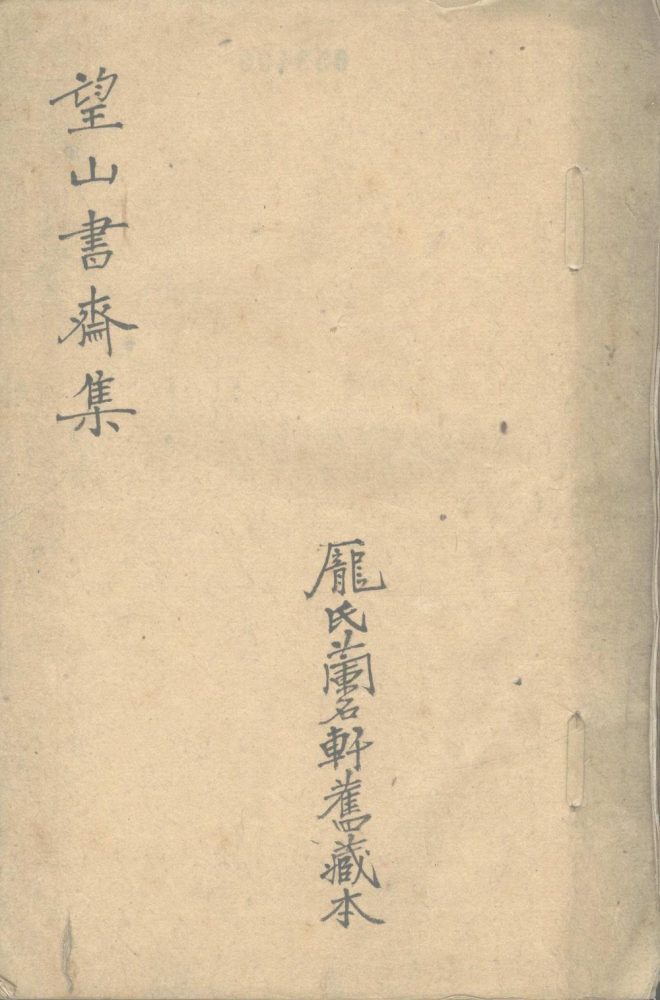 望山書齋集
龎氏蘭石軒舊藏本